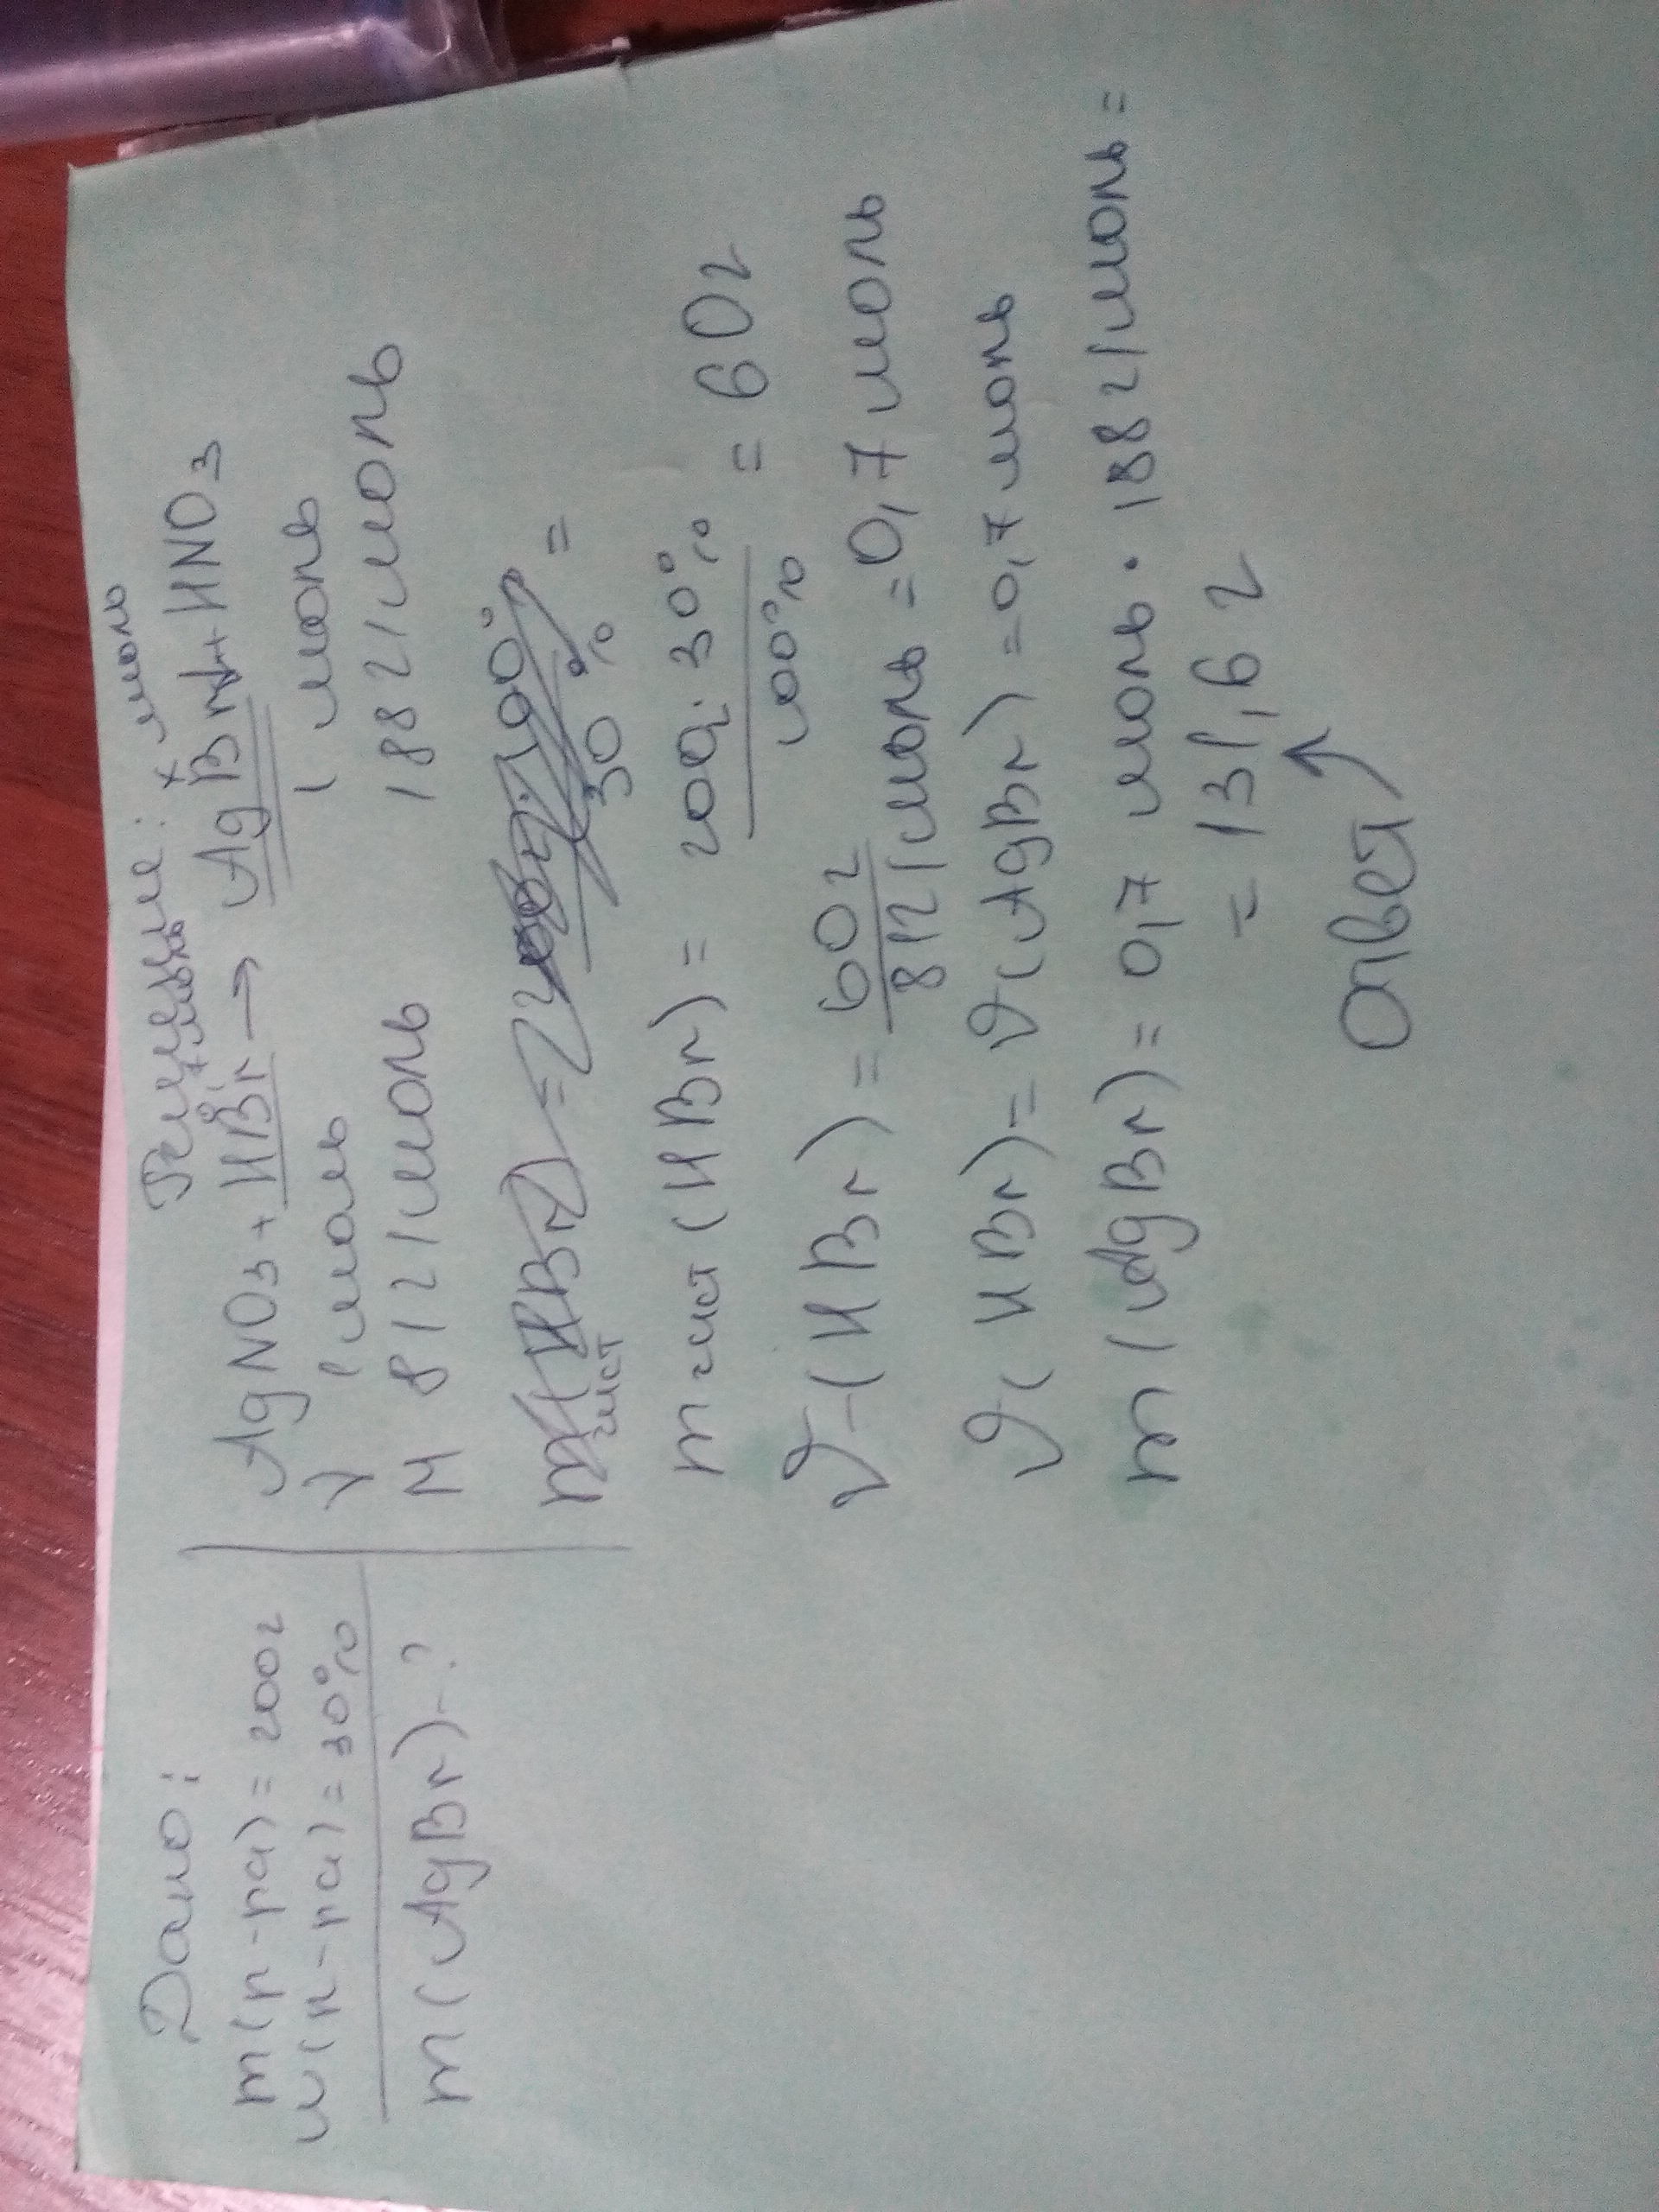 Дано:
m(р-ра) = 200г
w(р-ра) = 30%
m(AgBr) - ?
Решение:
x моль
AgNO3 + HBr → AgBr↓ + HNO3
ν 1 моль 1 моль
M 81г/моль 188г/моль
m чист (HBr) = 200г · 30% / 100% = 60г
ν(HBr) = 60г / 81г/моль = 0,7 моль
ν(HBr) = ν(AgBr) = 0,7 моль
m(AgBr) = 0,7 моль · 188г/моль =
= 131,6г
Ответ